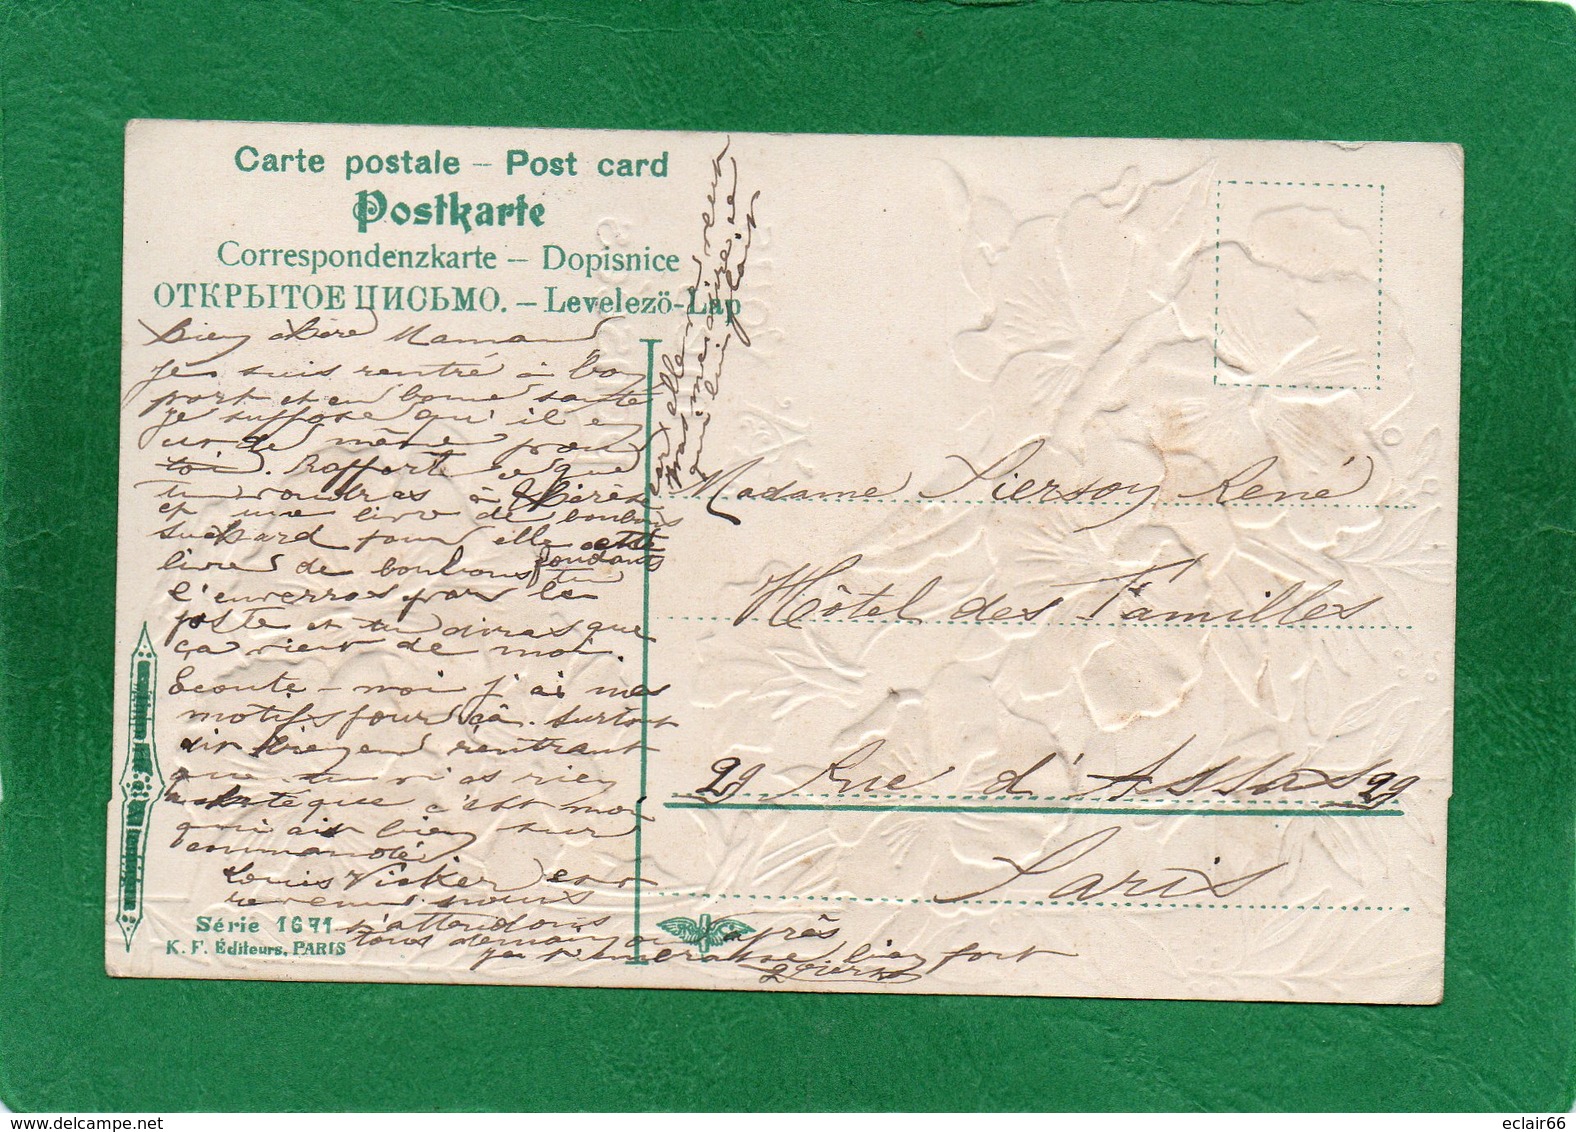 Carte postale – Post card
Postkarte
Correspondenzkarte – Dopisnice
ОТКРЫТОЕ ПИСЬМО. – Levelezö-Lap
Bien chère Maman
je suis rentré à bon
port et en bonne santé
je suppose qu'il en
de même pour
toi. Rapporte ce que
tu voudras à
et une livre de bonbons
suchard pour elle cette
livre de bonbons fondants tu
l'enverras par la
poste et tu diras que
ça vient de moi.
Ecoute-moi j'ai mes
motifs pour çà. surtout
dis bien en rentrant
que tu n'as rien
acheté que c'est moi
qui ait bien
commandé
Louis
revenu nous
t'attendons
tous demain ou après
je t'embrasse bien fort
car elle
pas
que lui plait
Madame Piersoy René
Hôtel des Familles
29 Rue d'Assas 29
Paris
Série 1671
K. F. Éditeurs, PARIS
eclair66